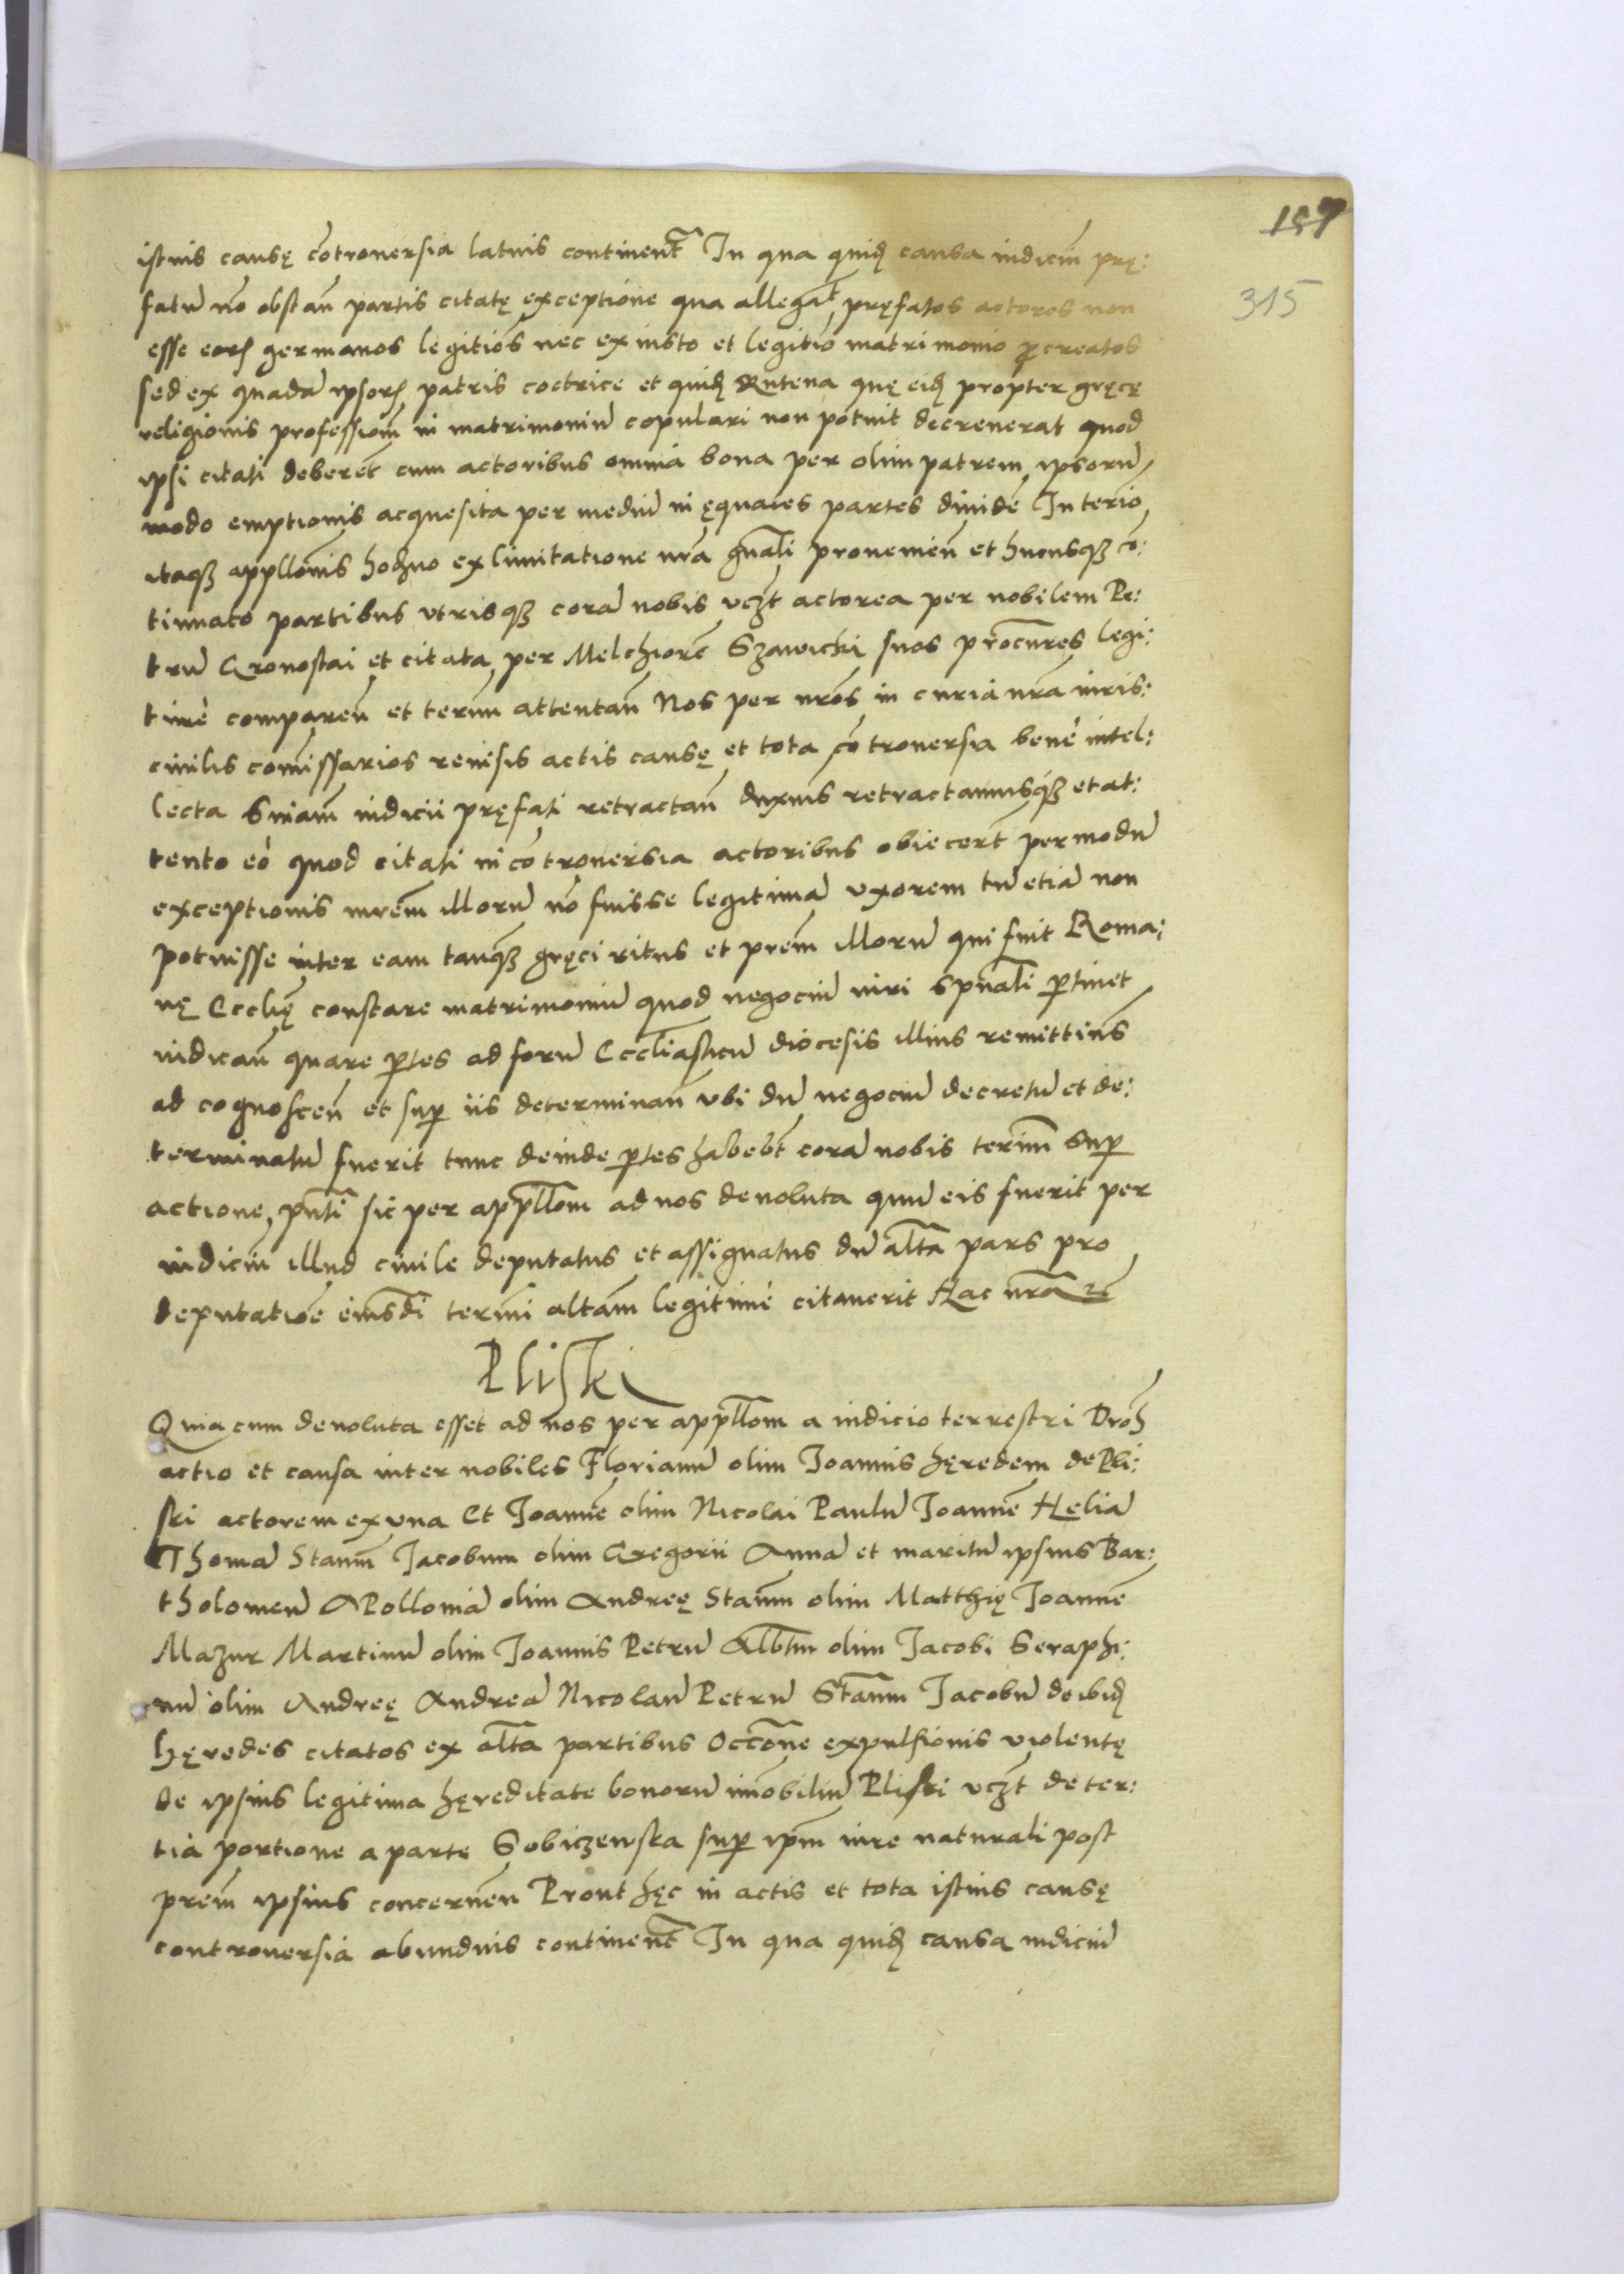 157
315
istius causę cōtrouersia latius continent̄ In qua quid̄ causa iudiciū prę:
fatū nō obstan̄ partis citatę exceptione qua allegāt pręfatos actores non
esse eor̄ germanos legitiōs nec ex iusto et legitiō matrimonio procreatos
sed ex quadā ipsor̄ patris coctrice et quid̄ Rutena quę eid̄ propter gręcę
religionis professiom̄ in matrimoniū copulari non potuit decreuerat quod
ipsi citati deberēt cum actoribus omnia bona per olim patrem ipsorū
modo emptionis acquesita per mediū in ęquales partes diuidē In terīo
itaqꝫ appllonis hodierno ex limitatione nr̄a gn̄ali prouenien̄ et hucusqꝫ cō:
tinuato partibus utrisqꝫ corā nobis vcꝫt actorea per nobilem Pe:
trū Cronostai et citata per Melchiorē Szawicki suos procur̄es legi:
timè comparen̄ et term̄ attentan̄ Nos per nr̄os in curia nr̄a iuris:
ciuilis com̄issarios reuisis actis causę et tota cōtrouersia benè intel:
lecta Sniam̄ iudicii pręfati retractan̄ duxim̄s retractamusqꝫ et at:
tento eo quod citati in cōtrouersia actoribus obiecerūt per modū
exceptionis mrēm illorū nō fuisse legitimā vxorem tū etiā non
potuisse inter eam tanqꝫ gręci ritus et prēm illorū qui fuit Roma:
nę Eccl̄ię constare matrimoniū quod negociū iuri Spūali pertinet
iudican̄ quare p̄tes ad forū Eccl̄iasticū diocesis illius remittim̄s
ad cognoscen̄ et sup̄ iis determinan̄ vbi dū negociū decretū et de:
terminatū fuerit tunc deinde p̄tes habebūt corā nobis termī Sup̄
actione pn̄ti sic per appllom̄ ad nos deuoluta quū eis fuerit per
iudiciū illud ciuile deputatus et assignatus dū altā pars pro
deputatioē eiusdī termī altam̄ legitimè citauerit Hac nr̄a ꝛc̄
Pliski
Quia cum deuoluta esset ad nos per appllom̄ a iudicio terrestri Droh̄
actio et causa inter nobiles Florianū olim Joannis hęredem de Pli:
ski actorem ex vna Et Joannē olim Nicolai Paulū Joannē Heliā
Thomā Stanm̄ Jacobum olim Gregorii Annā et maritū ipsius Bar:
tholomeū Apolloniā olim Andreę Stanm̄ olim Matthię Joannē
Mazur Martinū olim Joannis Petrū Albt̄m olim Jacobi Seraphi:
nū olim Andreę Andreā Nicolaū Petrū Stanm̄ Jacobū de ibid̄
hęredes citatos ex altā partibus Occōne expulsionis violentę
de ipsius legitima hęreditate bonorū imōbiliū Pliski vcꝫt de ter:
tia portione a parte Sobiczewska sup̄ ipm̄ iure naturali post
prēm ipsius concernen̄ Prout hęc in actis et tota istius causę
controuersia abundius continent̄ In qua quid̄ causa iudiciū